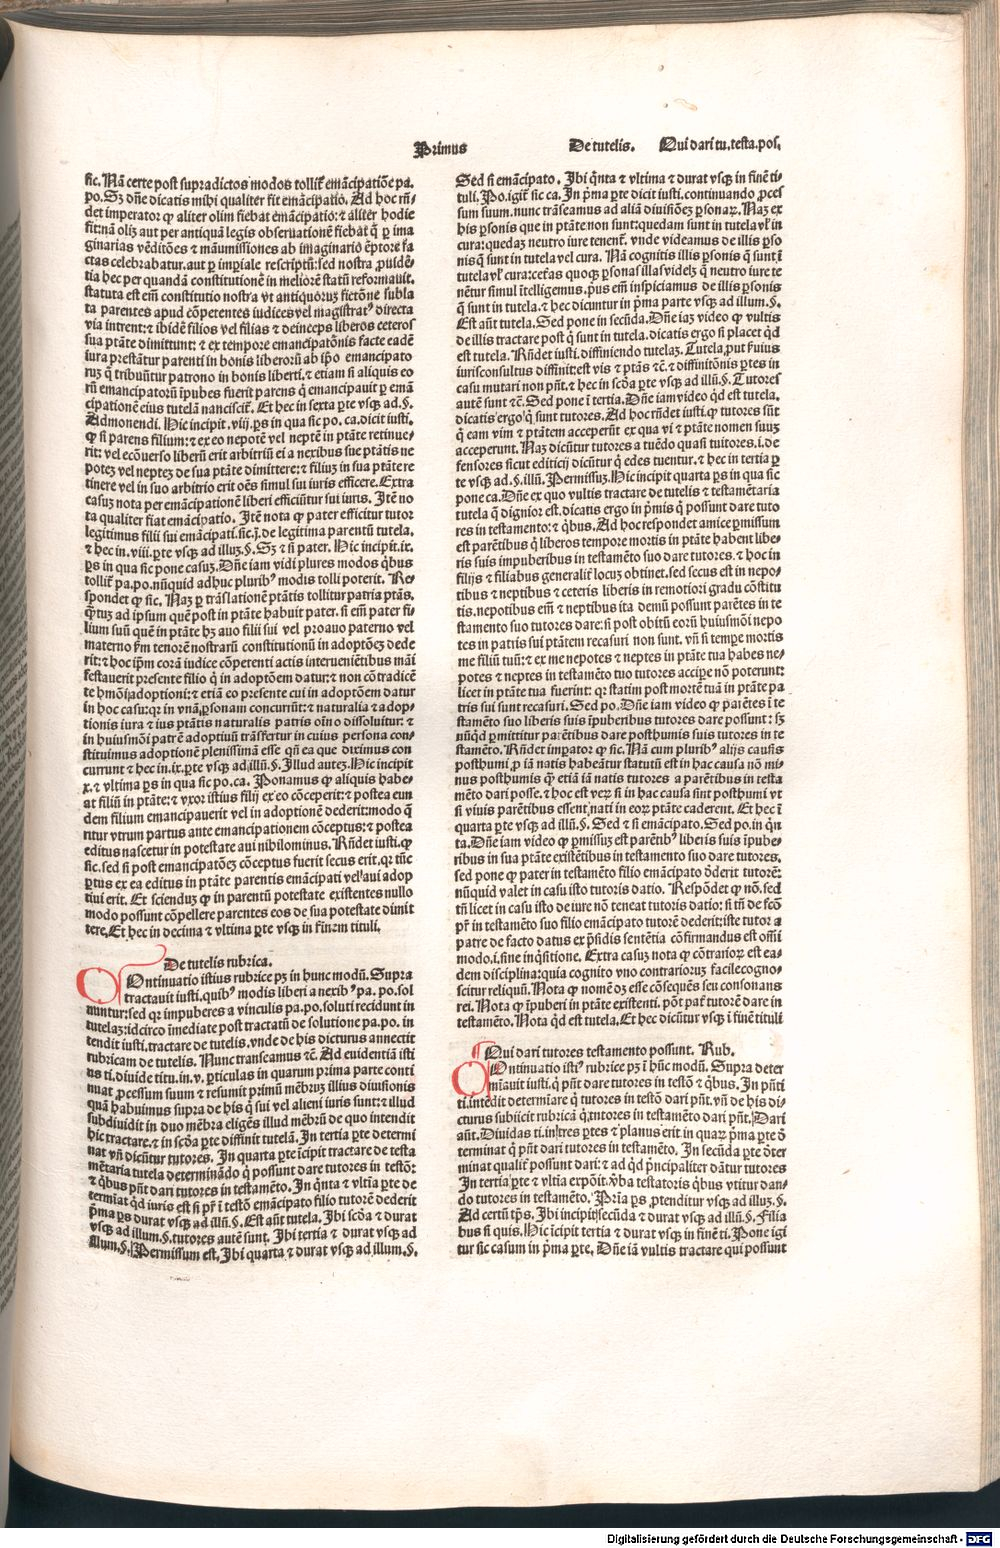 Primus De tutelis. Qui dari tu. testa. pos.
sic. Nã certe post supradictos modos tollit᷑ emãcipatiõe pa.
po. Sꝫ dñe dicatis mihi qualiter fit emãcipatio. Ad hoc rñ⸗
det imperator ꝙ aliter olim fiebat emãcipatio: ⁊ aliter hodie
fit: nã olĩ aut per antiquã legis obseruationẽ fiebat ꝙ̃ ꝑ ima
ginarias vẽditões ⁊ mãumissiones ab imaginario ẽptore fa
ctas celebrabatur. aut ꝑ imꝑiale rescriptũ: sed nostra ꝓuidẽ⸗
tia hec per quandã constitutionẽ in meliorẽ statũ reformauit.
statuta est em̃ constitutio nostra vt antiquoruꝫ fictõne subla
ta parentes apud cõpetentes iudices vel magistratꝰ directa
via intrent: ⁊ ibidẽ filios vel filias ⁊ deinceps liberos ceteros
sua ptãte dimittunt: ⁊ ex tempore emancipatõnis facte eadẽ
iura prestãtur parenti in bonis liberorũ ab ip̃o emancipato
ruꝫ q̃ tribuũtur patrono in bonis liberti. ⁊ etiam si aliquis eo
rũ emancipatorũ ĩpubes fuerit parens q̇ emancipauit ꝑ emã
cipationẽ eius tutelã nanciscit᷑. Et hec in sexta ꝑte vsqꝫ ad .§.
Admonendi. Hic incipit .vij. ꝑs in qua sic po. ca. dicit iusti.
ꝙ si parens filium: ⁊ ex eo nepotẽ vel neptẽ in ptãte retinue⸗
rit: vel ecõuerso liberũ erit arbitriũ ei a nexibus sue ptãtis ne
poteꝫ vel nepteꝫ de sua ptãte dimittere: ⁊ filiuꝫ in sua ptãte re
tinere vel in suo arbitrio erit oẽs simul sui iuris efficere. Extra
casuꝫ nota per emãcipationẽ liberi efficiũtur sui iuris. Itẽ no
ta qualiter fiat emãcipatio. Itẽ nota ꝙ pater efficitur tutor
legitimus filii sui emãcipati. sic.j. de legitima parentũ tutela.
⁊ hec in .viij. ꝑte vsqꝫ ad illuꝫ .§. Sꝫ ⁊ si pater. Hic incipit .ix.
ꝑs in qua sic pone casuꝫ. Dñe iam vidi plures modos q̇bus
tollit᷑ pa. po. nũquid adhuc pluribꝰ modis tolli poterit. Re⸗
spondet ꝙ sic. Naꝫ ꝑ trãslationẽ ptãtis tollitur patria ptãs.
q̃tuꝫ ad ipsum quẽ post in ptãte habuit pater. si em̃ pater fi⸗
lium suũ quẽ in ptãte hꝫ auo filii sui vel proauo paterno vel
materno ẜm tenorẽ nostrarũ constitutionũ in adoptõeꝫ dede
rit: ⁊ hoc ip̃m corã iudice cõpetenti actis interueniẽtibus mãi
festauerit presente filio q̇ in adoptõem datur: ⁊ non cõtradicẽ
te hm̃õi adoptioni: ⁊ etiã eo presente cui in adoptõem datur
in hoc casu: qꝛ in vnã ꝑsonam concurrũt: ⁊ naturalia ⁊ adop⸗
tionis iura ⁊ ius ptãtis naturalis patris oĩno dissoluitur: ⁊
in huiusmõi patrẽ adoptiuũ trãsfertur in cuius persona con⸗
stituimus adoptionẽ plenissimã esse qñ ea que diximus con
currunt ⁊ hec in .ix. ꝑte vsqꝫ ad illũ .§. Illud auteꝫ. Hic incipit
x. ⁊ vltima ꝑs in qua sic po. ca. Ponamus ꝙ aliquis habe⸗
at filiũ in ptãte: ⁊ vxor istius filij ex eo cõceperit: ⁊ postea eun
dem filium emancipauerit vel in adoptionẽ dederit: modo q̃
ritur vtrum partus ante emancipationem cõceptus: ⁊ postea
editus nascetur in potestate aui nihilominus. Rñdet iusti. ꝙ
sic. sed si post emancipatõeꝫ cõceptus fuerit secus erit. qꝛ tũc
ꝑtus ex ea editus in ptãte parentis emãcipati vel aui adop
tiui erit. Et sciendũ ꝙ in parentũ potestate existentes nullo
modo possunt cõpellere parentes eos de sua potestate dimit
tere. Et hec in decima ⁊ vltima ꝑte vsqꝫ in finem tituli.
De tutelis rubrica.
Continuatio istius rubrice pꝫ in hunc modũ. Supra
tractauit iusti. quibꝰ modis liberi a nexibꝰ pa. po. sol
uuntur: sed qꝛ impuberes a vinculis pa. po. soluti recidunt in
tutelaꝫ: idcirco ĩmediate post tractatũ de solutione pa. po. in
tendit iusti. tractare de tutelis. vnde de his dicturus annectit
rubricam de tutelis. Nunc transeamus ⁊c̃. Ad euidentiã isti
us ti. diuide titu. in .v. ꝑticulas in quarum prima parte conti
nuat ꝓcessum suum ⁊ resumit primũ mẽbruꝫ illius diuisionis
quã habuimus supra de his q̇ sui vel alieni iuris sunt: ⁊ illud
subdiuidit in duo mẽbra eligẽs illud mẽbrũ de quo intendit
hic tractare. ⁊ in scõa ꝑte diffinit tutelã. In tertia ꝑte determi
nat vñ dicũtur tutores. In quarta ꝑte ĩcipit tractare de testa
mẽtaria tutela determinãdo q̇ possunt dare tutores in testõ:
⁊ q̇bus pñt dari tutores in testamẽto. In q̃nta ⁊ vltĩa ꝑte de
termĩat q̇d iuris est si pr̃ ĩ testõ emãcipato filio tutorẽ dederit
p̃ma ꝑs durat vsqꝫ ad illũ .§. Est aũt tutela. Ibi scõa ⁊ durat
vsqꝫ ad illum .§. tutores autẽ sunt. Ibi tertia ⁊ durat vsqꝫ ad
illum .§. Permissum est. Ibi quarta ⁊ durat vsqꝫ ad illum .§.
Sed si emãcipato. Ibi q̃nta ⁊ vltima ⁊ durat vsqꝫ in finẽ ti⸗
tuli. Po. igit᷑ sic ca. In p̃ma ꝑte dicit iusti. continuando ꝓces
sum suum. nunc trãseamus ad aliã diuisiõeꝫ ꝑsonaꝝ. Naꝫ ex
his ꝑsonis que in ptãte non sunt: quedam sunt in tutela vl̓ in
cura: quedaꝫ neutro iure tenent᷑. vnde videamus de illis ꝑso
nis q̃ sunt in tutela vel cura. Nã cognitis illis ꝑsonis q̃ sunt ĩ
tutela vl̓ cura: cet̃as quoqꝫ ꝑsonas illas videlꝫ q̃ neutro iure te
nẽtur simul ĩtelligemus. pꝰus em̃ inspiciamus de illis ꝑsonis
q̃ sunt in tutela. ⁊ hec dicuntur in p̃ma parte vsqꝫ ad illum .§.
Est aũt tutela. Sed pone in secũda. Dñe iaꝫ video ꝙ vultis
de illis tractare post q̇ sunt in tutela. dicatis ergo si placet q̇d
est tutela. Rñdet iusti. diffiniendo tutelaꝫ. Tutela ꝓut ẜuius
iurisconsultus diffinit: est vis ⁊ ptãs ⁊c̃. ⁊ diffinitõnis ꝑtes in
casu mutari non pñt. ⁊ hec in scõa ꝑte vsqꝫ ad illũ .§. Tutores
autẽ sunt ⁊c̃. Sed pone ĩ tertia. Dñe iam video q̇d est tutela.
dicatis ergo q̇ sunt tutores. Ad hoc rñdet iusti. ꝙ tutores sũt
q̇ eam vim ⁊ ptãtem acceperũt ex qua vi ⁊ ptãte nomen suuꝫ
acceperunt. Naꝫ dicũtur tutores a tuẽdo quasi tuitores. i. de
fensores sicut editicij dicũtur q̇ edes tuentur. ⁊ hec in tertia ꝑ
te vsqꝫ ad .§. illũ. Permissuꝫ. Hic incipit quarta ꝑs in qua sic
pone ca. Dñe ex quo vultis tractare de tutelis ⁊ testamẽtaria
tutela q̃ dignior est. dicatis ergo in p̃mis q̇ possunt dare tuto
res in testamento: ⁊ q̇bus. Ad hoc respondet amice ꝑmissum
est parẽtibus q̇ liberos tempore mortis in ptãte habent libe⸗
ris suis impuberibus in testamẽto suo dare tutores. ⁊ hoc in
filijs ⁊ filiabus generalit᷑ locuꝫ obtinet. sed secus est in nepo⸗
tibus ⁊ neptibus ⁊ ceteris liberis in remotiori gradu cõstitu
tis. nepotibus em̃ ⁊ neptibus ita demũ possunt parẽtes in te
stamento suo tutores dare: si post obitũ eorũ huiusmõi nepo
tes in patris sui ptãtem recasuri non sunt. vñ si tempe mortis
me filiũ tuũ: ⁊ ex me nepotes ⁊ neptes in ptãte tua habes ne⸗
potes ⁊ neptes in testamẽto tuo tutores accipe nõ poterunt:
licet in ptãte tua fuerint: qꝛ statim post mortẽ tuã in ptãte pa
tris sui sunt recasuri. Sed po. Dñe iam video ꝙ parẽtes ĩ te
stamẽto suo liberis suis ĩpuberibus tutores dare possunt: sꝫ
nũq̇d ꝑmittitur parẽtibus dare posthumis suis tutores in te
stamẽto. Rñdet imꝑator ꝙ sic. Nã cum pluribꝰ alijs causis
posthumi ꝓ iã natis habeãtur statutũ est in hac causa nõ mi⸗
nus posthumis q̃ꝫ etiã iã natis tutores a parẽtibus in testa
mẽto dari posse. ⁊ hoc est veꝝ si in hac causa sint posthumi vt
si viuis parẽtibus essent nati in eoꝝ ptãte caderent. Et hec ĩ
quarta ꝑte vsqꝫ ad illũ .§. Sed ⁊ si emãcipato. Sed po. in q̃n
ta. Dñe iam video ꝙ ꝑmissuꝫ est parẽtibꝰ liberis suis ĩpube⸗
ribus in sua ptãte existẽtibus in testamento suo dare tutores.
sed pone ꝙ pater in testamẽto filio emãcipato dederit tutorẽ:
nũquid valet in casu isto tutoris datio. Respõdet ꝙ nõ. sed
tñ licet in casu isto de iure nõ teneat tutoris datio: si tñ de fcõ
pr̃ in testamẽto suo filio emãcipato tutorẽ dederit: iste tutor a
patre de facto datus ex p̃sidis sentẽtia cõfirmandus est om̃i
modo. i. sine inq̇sitione. Extra casuꝫ nota ꝙ cõtrarioꝝ est ea⸗
dem disciplina: quia cognito vno contrarioruꝫ facile cogno⸗
scitur reliquũ. Nota ꝙ nomẽ dꝫ esse cõsequẽs seu consonans
rei. Nota ꝙ ĩpuberi in ptãte existenti. põt pat᷑ tutorẽ dare in
testamẽto. Nota q̇d est tutela. Et hec dicũtur vsqꝫ ĩ finẽ tituli
¶ Qui dari tutores testamento possunt. Rub.
Continuatio istiꝰ rubrice pꝫ ĩ hũc modũ. Supra deter
mĩauit iusti. q̇ pñt dare tutores in testõ ⁊ q̇bus. In pñti
ti. intẽdit determĩare q̇ tutores in testõ dari pñt. vñ de his di⸗
cturus subijcit rubricã q̇ tutores in testamẽto dari pñt. Dari
aũt. Diuidas ti. in tres ꝑtes ⁊ planus erit. in quaꝝ p̃ma ꝑte de
terminat q̇ pñt dari tutores in testamẽto. In secũda ꝑte deter
minat qualit᷑ possunt dari: ⁊ ad q̇d p̃ncipaliter dãtur tutores
In tertia ꝑte ⁊ vltĩa expõit ꝟba testatoris q̇bus vtitur dan⸗
do tutores in testamẽto. Prĩa ꝑs ꝓtenditur vsqꝫ ad illuꝫ .§.
Ad certũ tp̃s. Ibi incipit secũda ⁊ durat vsqꝫ ad illũ .§. Filia
bus si quis. Hic ĩcipit tertia ⁊ durat vsqꝫ in finẽ ti. Pone igi
tur sic casum in p̃ma ꝑte. Dñe iã vultis tractare qui possunt
Digitalisierung gefördert durch die Deutsche Forschungsgemeinschaft - DFG